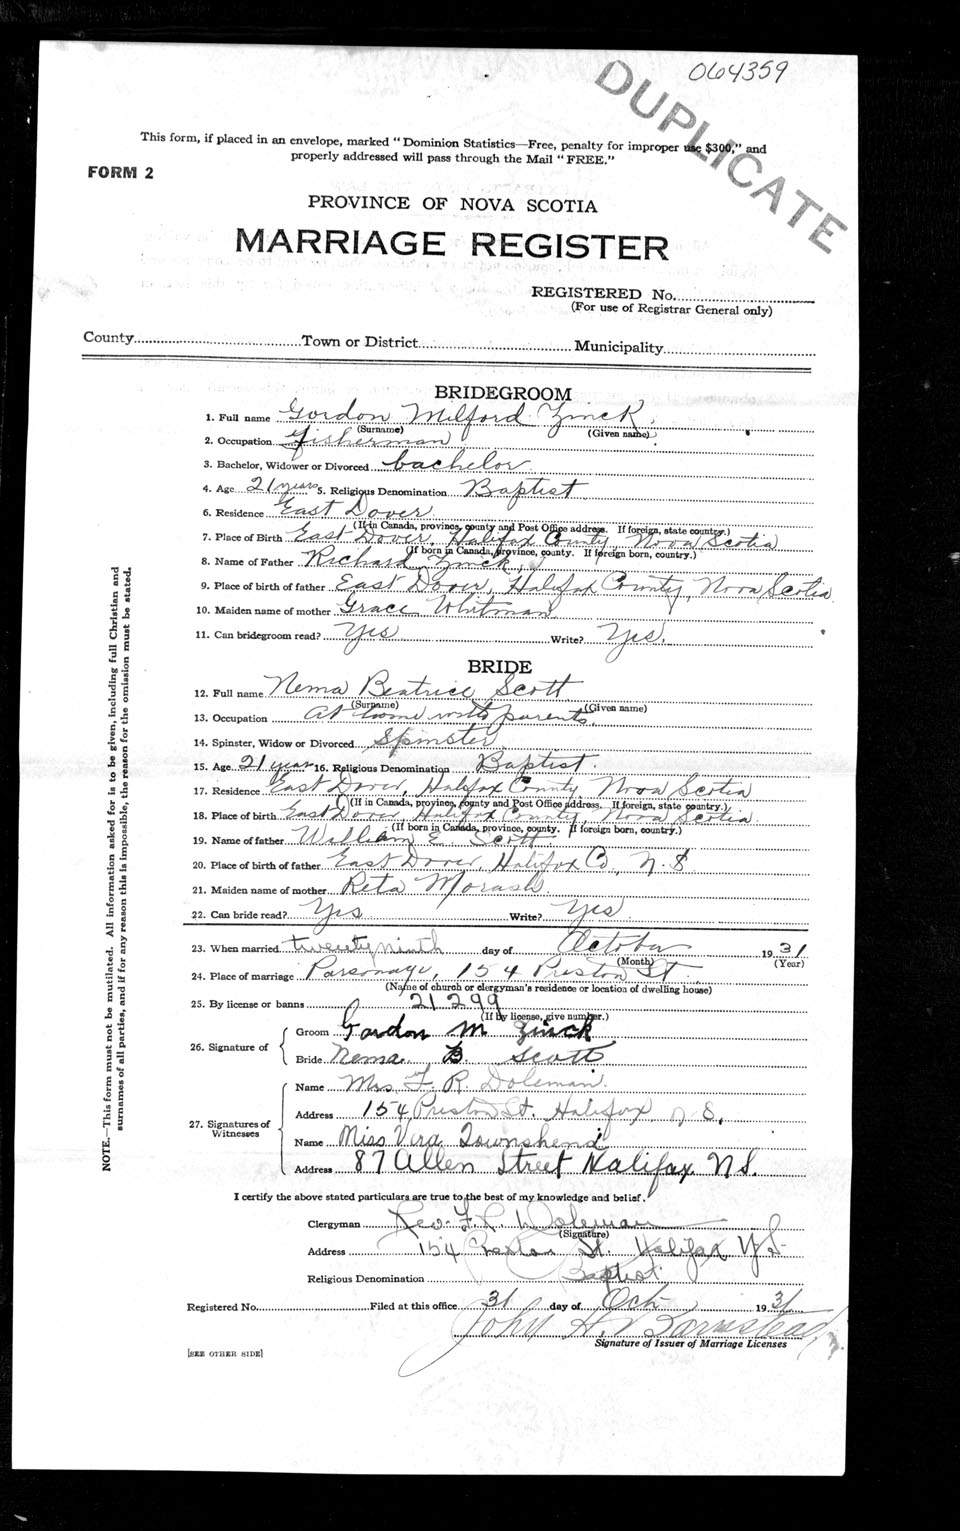 064359
DUPLICATE
This form, if placed in an envelope, marked "Dominion Statistics—Free, penalty for improper use $300," and
properly addressed will pass through the Mail "FREE."
FORM 2
PROVINCE OF NOVA SCOTIA
MARRIAGE REGISTER
REGISTERED No.
(For use of Registrar General only)
County Town or District Municipality
BRIDEGROOM
1. Full name Gordon Milford Zinck
(Surname) (Given name)
2. Occupation Fisherman
3. Bachelor, Widower or Divorced bachelor
4. Age 21 years 5. Religious Denomination Baptist
6. Residence East Dover
(If in Canada, province, county and Post Office address. If foreign, state country.)
7. Place of Birth East Dover, Halifax County, Nova Scotia
(If born in Canada, province, county. If foreign born, country.)
8. Name of Father Richard Zinck
9. Place of birth of father East Dover, Halifax County, Nova Scotia
10. Maiden name of mother Grace Whitman
11. Can bridegroom read? Yes Write? Yes.
BRIDE
12. Full name Nema Beatrice Scott
(Surname) (Given name)
13. Occupation At home with parents
14. Spinster, Widow or Divorced Spinster
15. Age 21 years 16. Religious Denomination Baptist.
17. Residence East Dover, Halifax County, Nova Scotia
(If in Canada, province, county and Post Office address. If foreign, state country.)
18. Place of birth East Dover, Halifax County, Nova Scotia
(If born in Canada, province, county. If foreign born, country.)
19. Name of father William E. Scott
20. Place of birth of father East Dover, Halifax Co, N.S
21. Maiden name of mother Reta Morash
22. Can bride read? Yes Write? Yes
23. When married twenty ninth day of October 1931
(Month) (Year)
24. Place of marriage Parsonage, 154 Preston St.
(Name of church or clergyman's residence or location of dwelling house)
25. By license or banns 21299
(If by license, give number.)
26. Signature of
Groom Gordon M Zinck
Bride Nema B Scott
27. Signatures of Witnesses
Name Mrs F. R. Doleman.
Address 154 Preston St. Halifax N.S.
Name Miss Vera Townshend
Address 87 Allen Street Halifax N.S.
I certify the above stated particulars are true to the best of my knowledge and belief.
Clergyman Rev. F. R. Doleman
(Signature)
Address 154 Preston St. Halifax N S
Religious Denomination Baptist
Registered No. Filed at this office 31 day of Oct 1931
John H. Barnstead
Signature of Issuer of Marriage Licenses
[SEE OTHER SIDE]
NOTE.—This form must not be mutilated. All information asked for is to be given, including full Christian and
surnames of all parties, and if for any reason this is impossible, the reason for the omission must be stated.